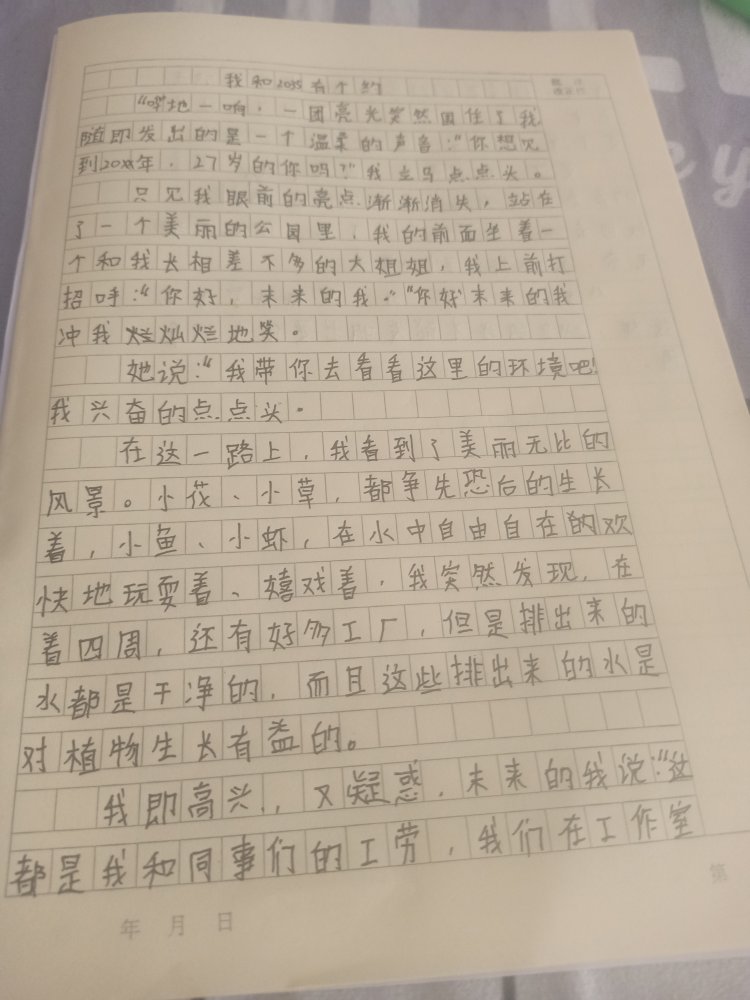 我和2035有个约
批 注
"哗地一响，一团亮光突然围住了我
随即发出的是一个温柔的声音："你想见
到20年，27岁的你吗？"我立马点点头。
只见我眼前的亮点渐渐消失，站在
了一个美丽的公园里，我的前面坐着一
个和我长相差不多的大姐姐，我上前打
招呼："你好，未来的我。""你好"未来的我
冲我烂灿烂地笑。
她说："我带你去看看这里的环境吧！
我兴奋的点点头。
在这一路上，我看到了美丽无比的
风景。小花、小草，都争先恐后的生长
着，小鱼、小虾，在水中自由自在的欢
快地玩耍着、嬉戏着，我突然发现，在
着四周，还有好多工厂，但是排出来的
水都是干净的，而且这些排出来的水是
对植物生长有益的。
我即高兴，又疑惑，未来的我说："这
都是我和同事们的工劳，我们在工作室
年 月 日
第